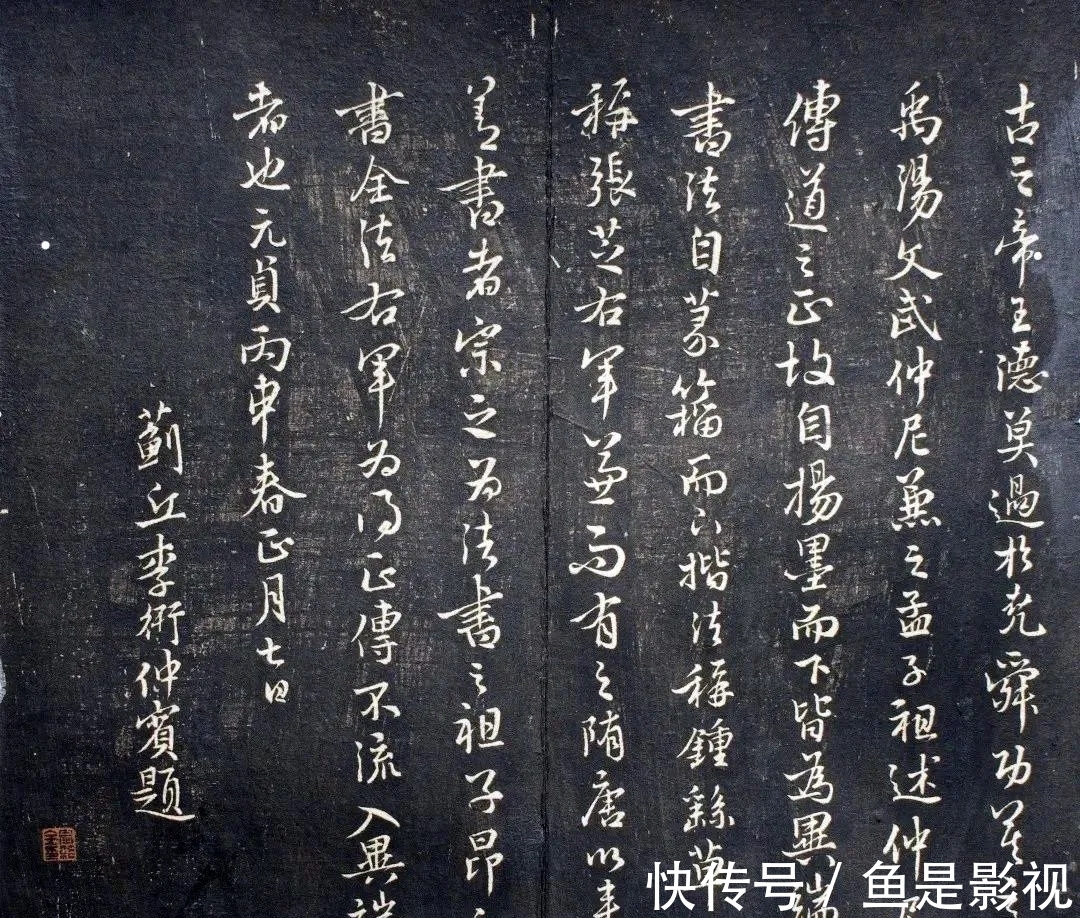 古之帝王德莫過於堯舜功莫
禹湯文武仲尼兼之孟子祖述仲
傳道之正故自揚墨而下皆為異端
書法自篆籀而下揩法稱鍾繇草
稱張芝右軍兼而有之隋唐以来
善書者宗之為法書之祖子昂之
書全法右軍為得正傳不流入異端
者也元貞丙申春正月七日
薊丘李衎仲賓題
快传号 / 鱼是影视